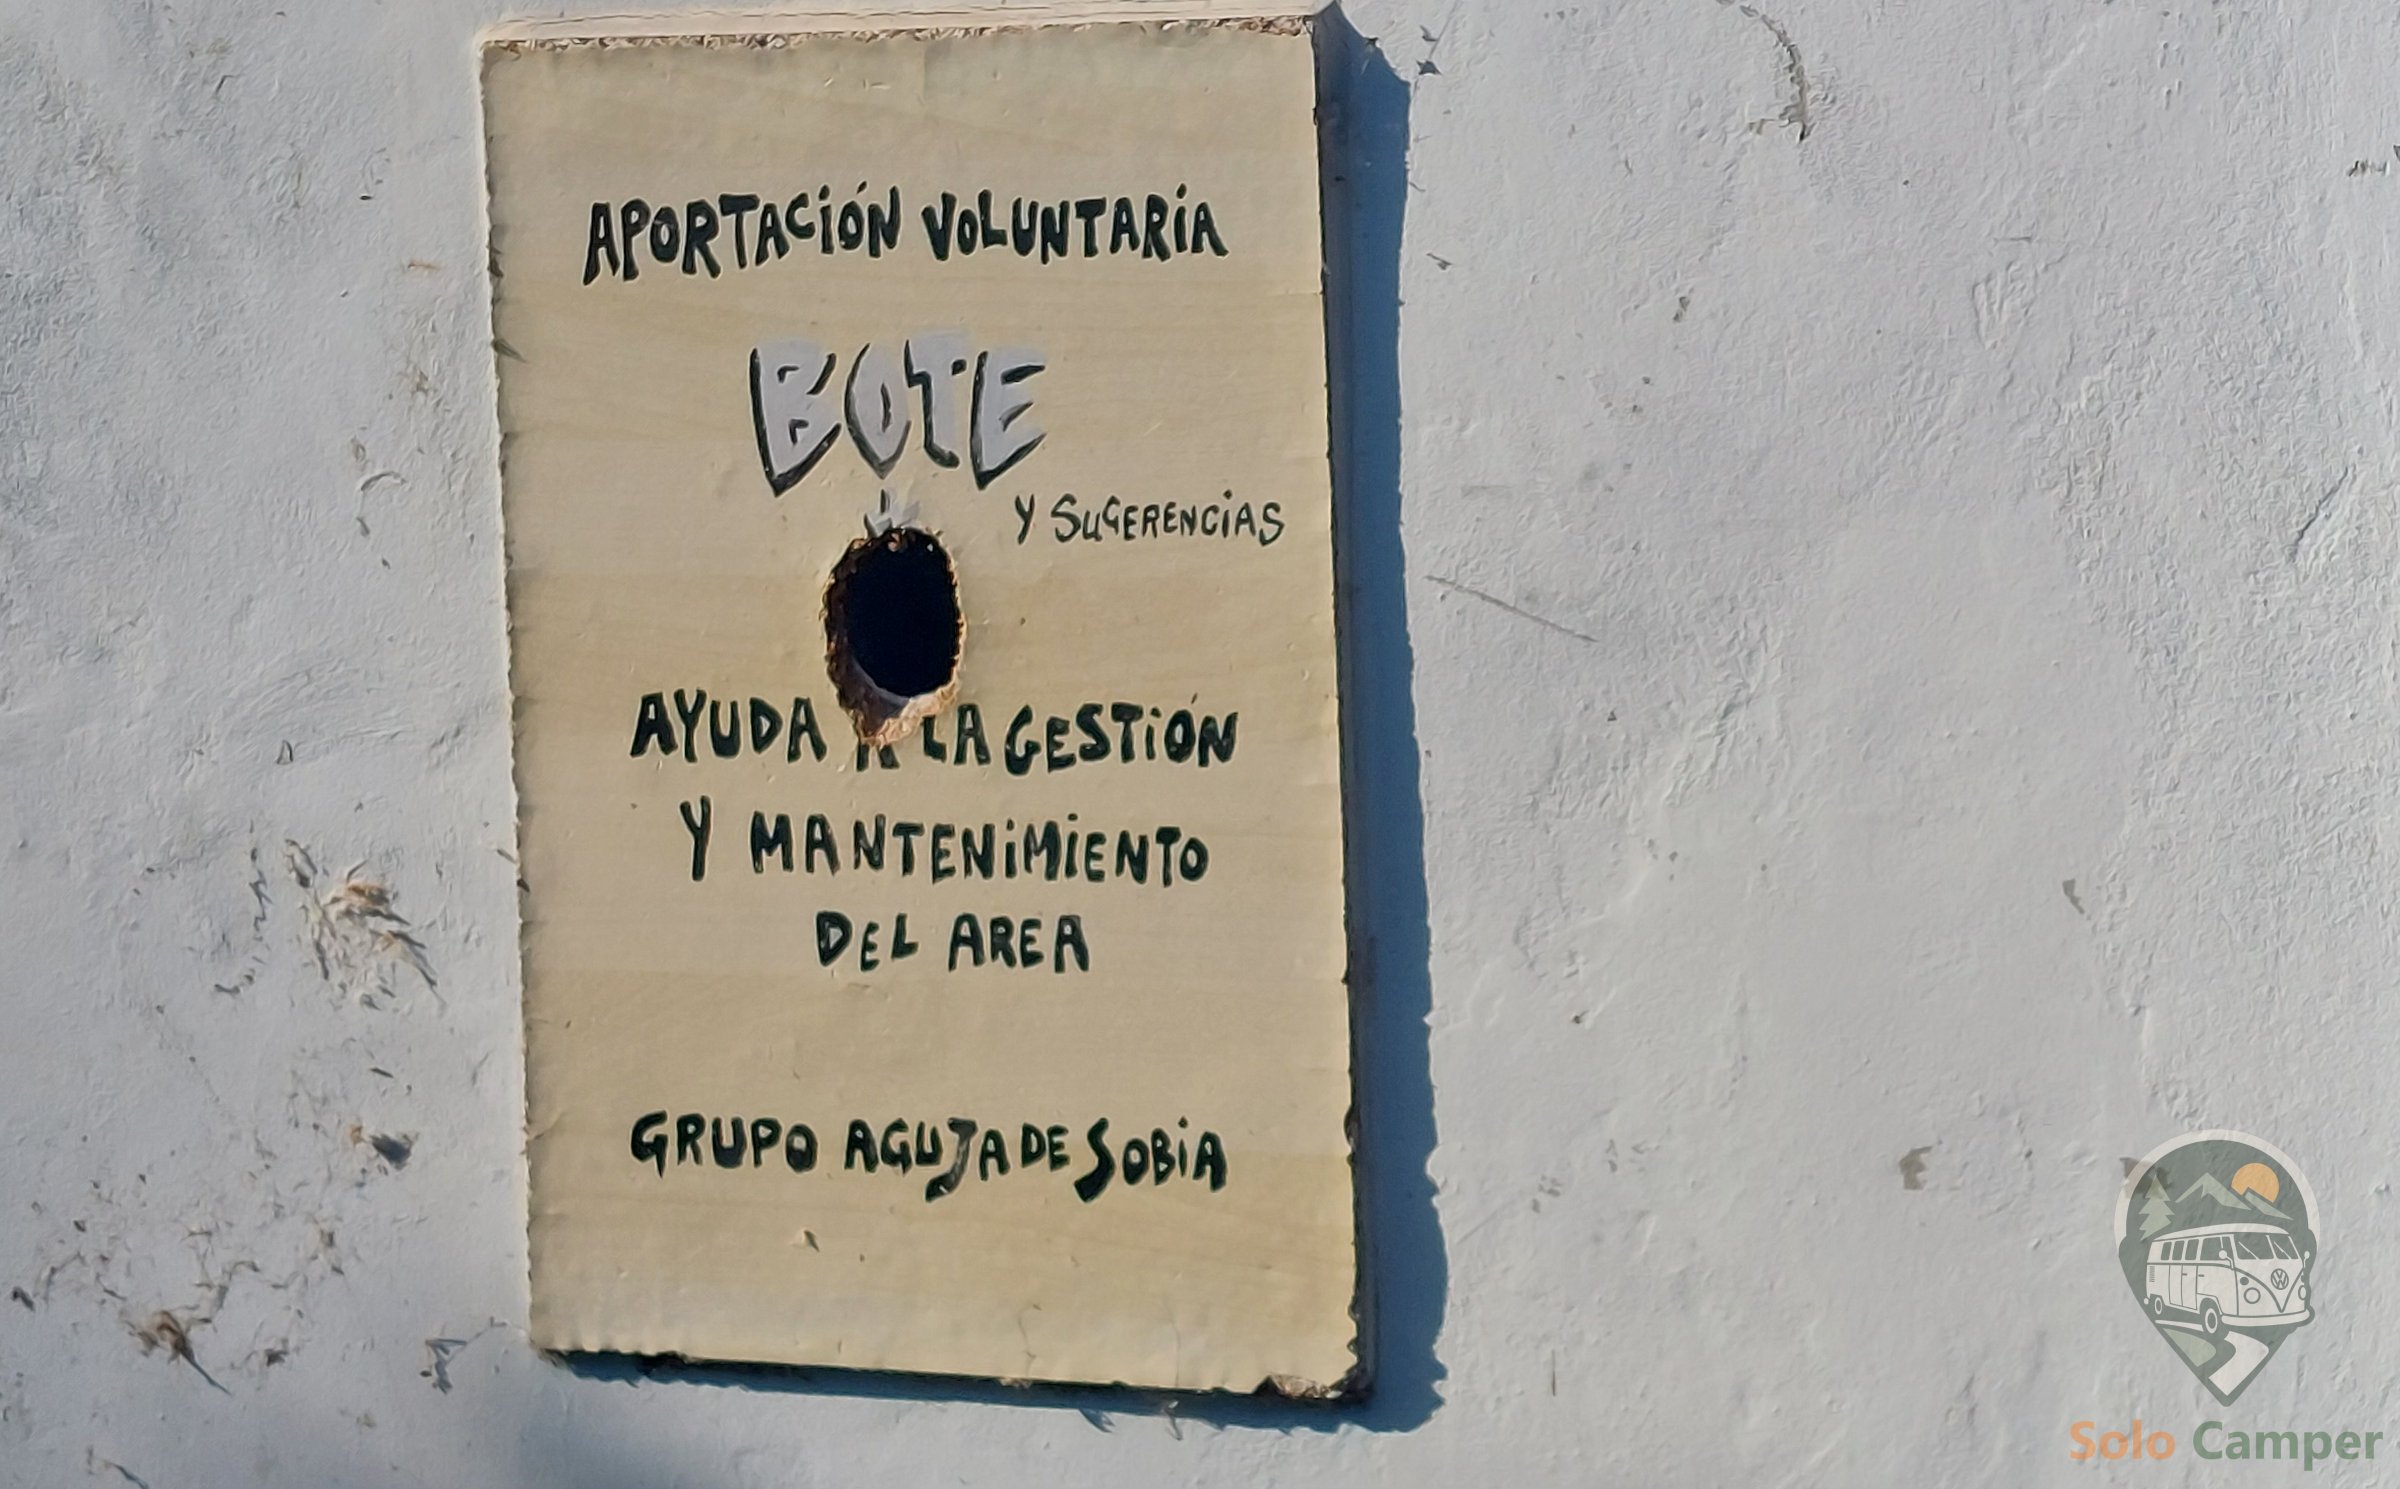 APORTACIÓN VOLUNTARIA
BOTE
Y SUGERENCIAS
AYUDA A LA GESTIÓN
Y MANTENIMIENTO
DEL AREA
GRUPO AGUJA DE SOBIA
Solo Camper